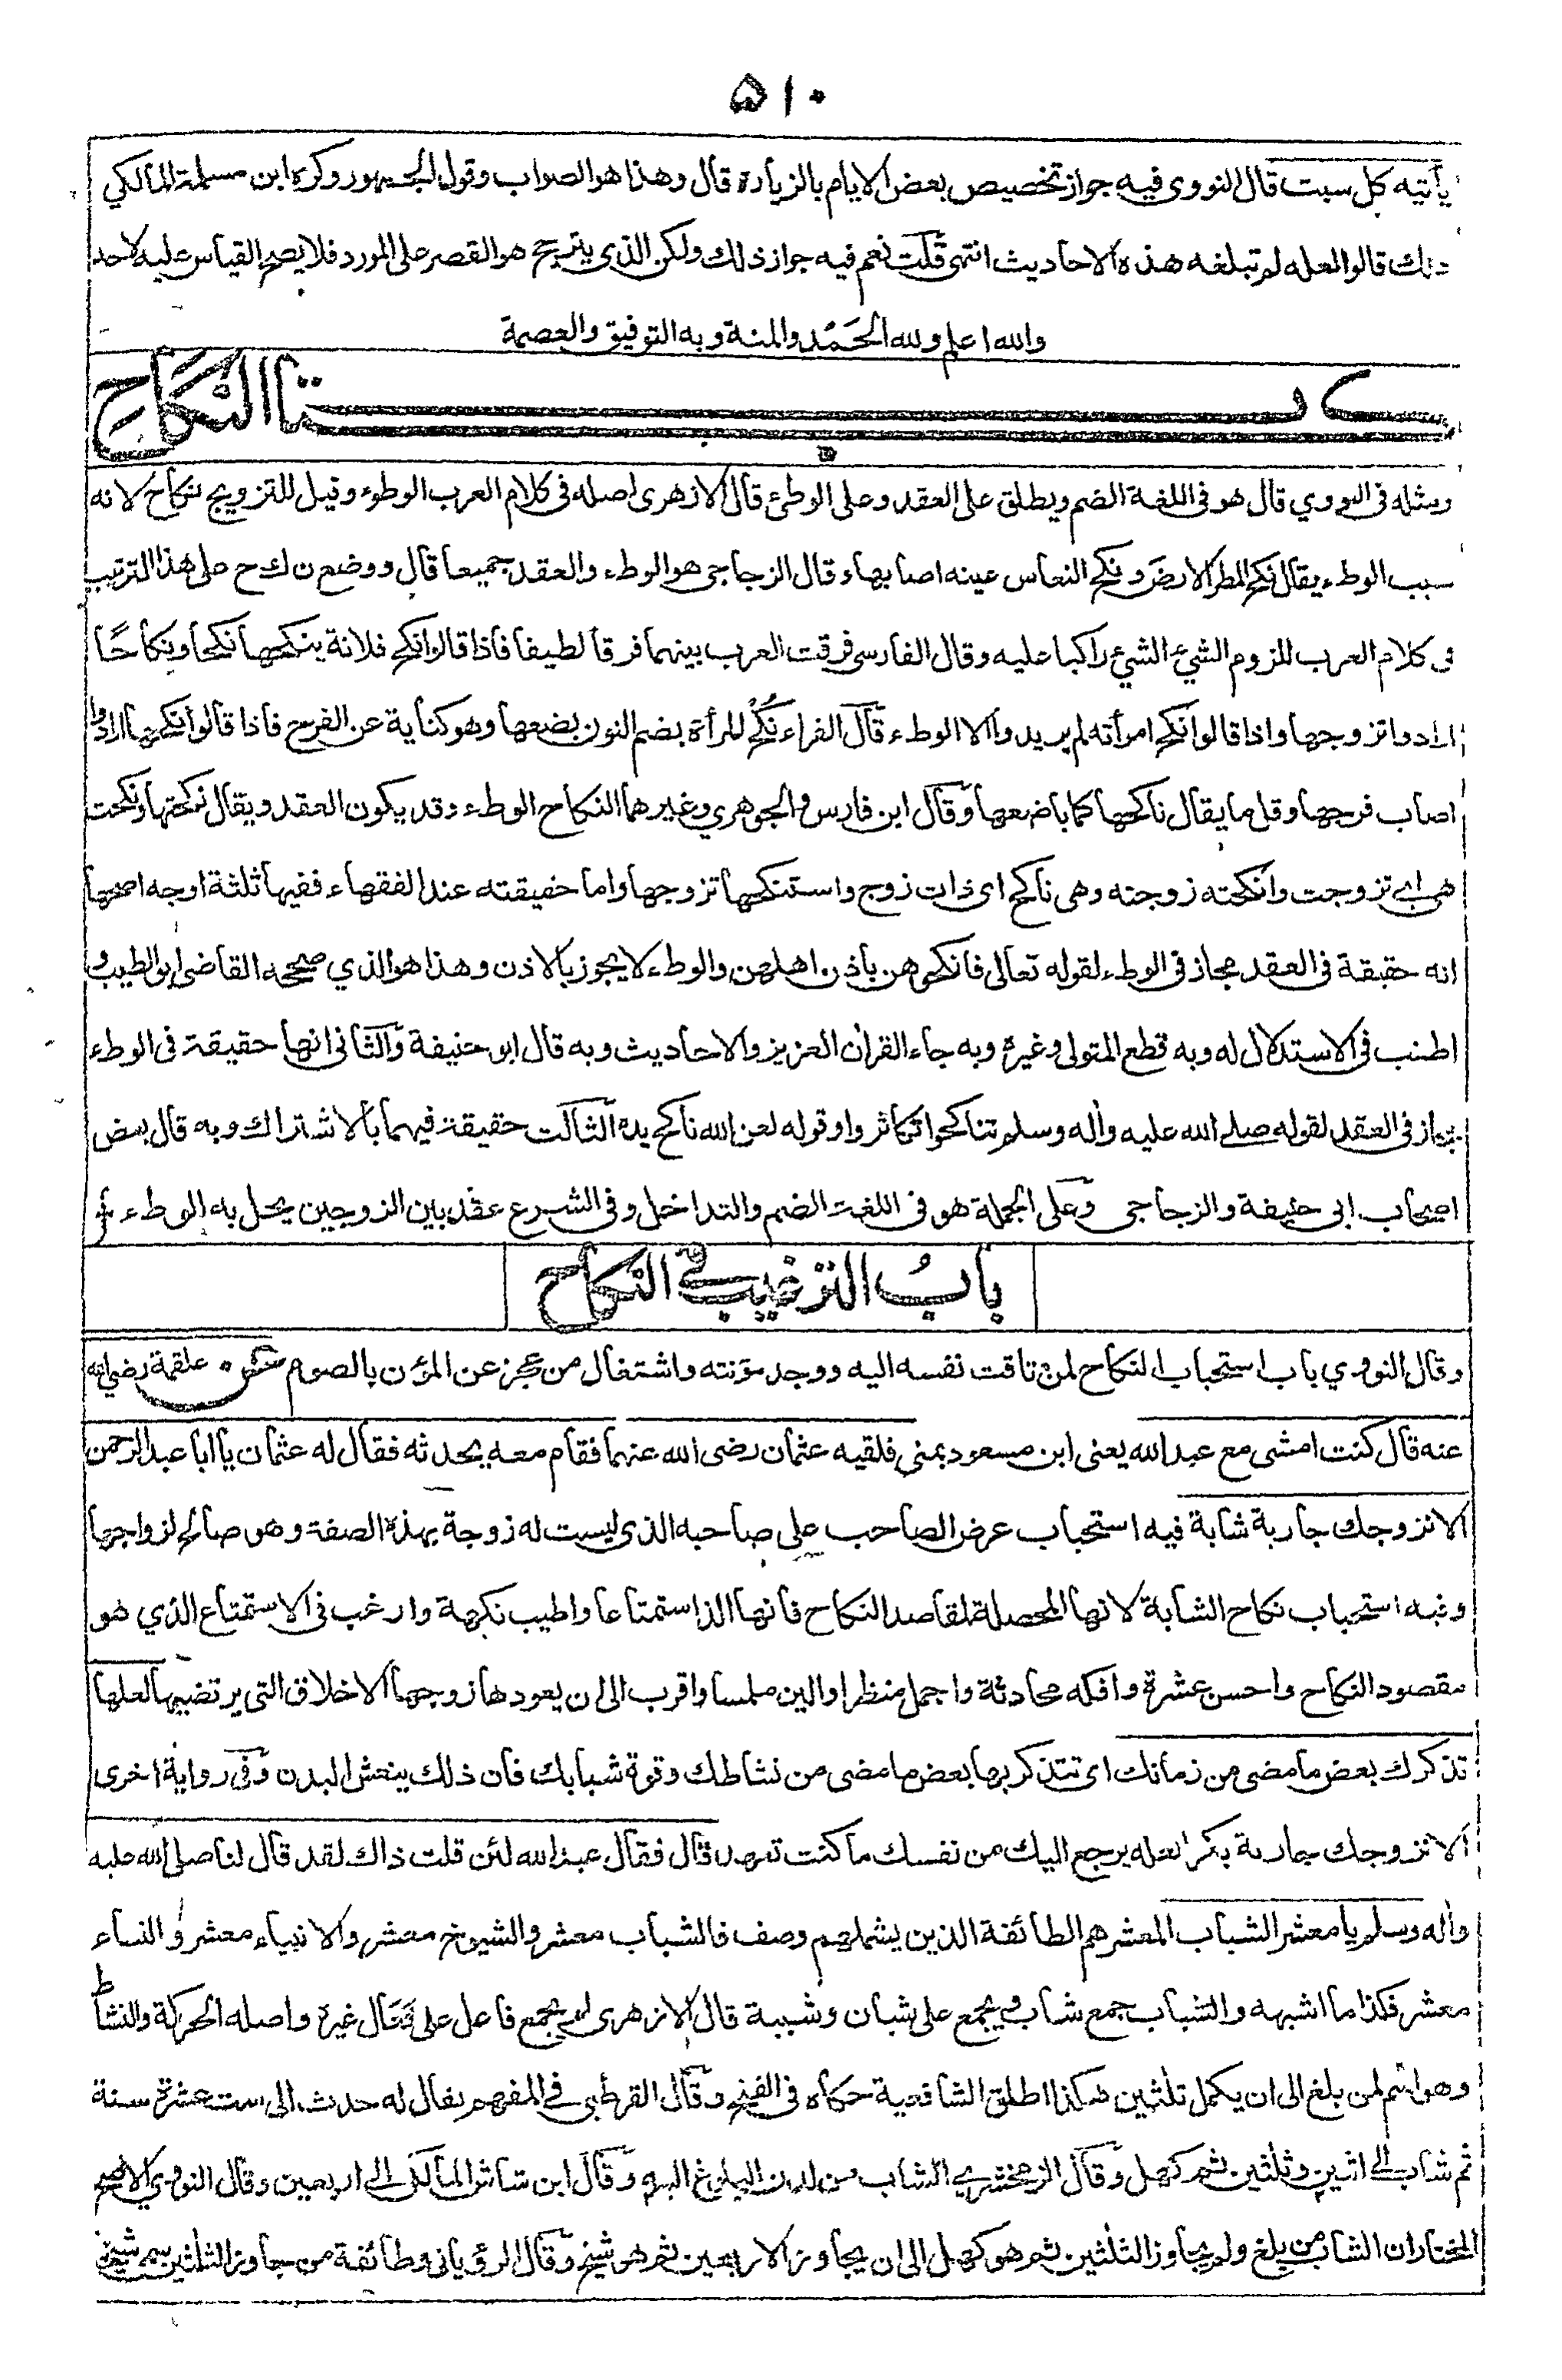 ۵۱۰
يأتيه كل سبت قال النووي فيه جواز تخصيص بعض الايام بالزيارة قال وهذا هو الصواب وقول الجمهور وكره ابن مسلمة المالكي
ذلك قالوا لعله لم تبلغه هذه الاحاديث انتهى قلت نعم فيه جواز ذلك ولكن الذي يترجح هو القصر على المورد فلا يصح القياس عليه لاحد
والله اعلم ولله الحمد والمنة وبه التوفيق والعصمة
كتاب النكاح
ومثله في النووي قال هو في اللغة الضم ويطلق على العقد وعلى الوطئ قال الازهرى اصله في كلام العرب الوطوء وقيل للتزويج نكاح لانه
سبب الوطء يقال نكح المطر الارض ونكح النعاس عينه اصابها وقال الزجاجى هو الوطء والعقد جميعا قال ووضع ن ك ح على هذا الترتيب
فى كلام العرب للزوم الشئ الشئ راكبا عليه وقال الفارسى فرقت العرب بينهما فرقا لطيفا فاذا قالوا نكح فلانة ينكحها نكحا ونكاحًا
ارادوا تزوجها واذا قالوا نكح امرأته لم يريدوا الا الوطء قال الفراء نُكُحْ المرأة بضم النون بضعها وهو كناية عن الفرج فاذا قالوا نكحها ارادوا
اصاب فرجها وقل ما يقال ناكحها كما باضعها وقال ابن فارس والجوهري وغيرهما النكاح الوطء وقد يكون العقد ويقال نكحتها ونكحت
هى اى تزوجت وانكحته زوجته وهى ناكح اى ذات زوج واستنكحها تزوجها واما حقيقته عند الفقهاء ففيها ثلثة اوجه اصحها
انه حقيقة فى العقد مجاز فى الوطء لقوله تعالى فانكحوهن باذن اهلهن والوطء لا يجوز بالاذن وهذا هو الذي صححه القاضى ابو الطيب و
اطنب فى الاستدلال له وبه قطع المتولى وغيره وبه جاء القرأن العزيز والاحاديث وبه قال ابو حنيفة والثانى انها حقيقة فى الوطء
مجاز فى العقد لقوله صلى الله عليه وأله وسلم تناكحوا تكاثروا وقوله لعن الله ناكح يده الثالث حقيقة فيهما بالاشتراك وبه قال بعض
اصحاب ابى حنيفة والزجاجى وعلى الجملة هو فى اللغة الضم والتداخل وفى الشرع عقد بين الزوجين يحل به الوطء
بابُ الترغيب في النكاح
وقال النووي باب استحباب النكاح لمن تاقت نفسه اليه ووجد مؤنته واشتغال من عجز عن المؤن بالصوم عن علقمة رضى الله
عنه قال كنت امشى مع عبد الله يعنى ابن مسعود بمنى فلقيه عثمان رضى الله عنهما فقام معه يحدثه فقال له عثمان يا ابا عبد الرحمن
الا نزوجك جارية شابة فيه استحباب عرض الصاحب على صاحبه الذى ليست له زوجة بهذه الصفة وهو صالح لزواجها
وفيه استحباب نكاح الشابة لانها المحصلة لمقاصد النكاح فانها الذ استمتاعا واطيب نكهة وارغب فى الاستمتاع الذي هو
مقصود النكاح واحسن عشرة وافكه محادثة واجمل منظرا والين ملمسا واقرب الى ان يعودها زوجها الاخلاق التى يرتضيها لعلها
تذكرك بعض ما مضى من زمانك اى تتذكر بها بعض ما مضى من نشاطك وقوة شبابك فان ذلك ينعش البدن وفى رواية اخرى
الا نزوجك جارية بكرا لعله يرجع اليك من نفسك ما كنت تعهد قال فقال عبد الله لئن قلت ذاك لقد قال لنا صلى الله عليه
وأله وسلم يا معشر الشباب المعشر هم الطائفة الذين يشملهم وصف فالشباب معشر والشيوخ معشر والانبياء معشر والنساء
معشر فكذا ما اشبهه والشباب جمع شاب ويجمع على شبان وشببة قال الازهرى لم يجمع فاعل على فعال غيره واصله الحركة والنشاط
وهو اسم لمن بلغ الى ان يكمل ثلثين هكذا اطلق الشافعية حكاه فى الفتح وقال القرطبى في المفهم يقال له حدث الى ست عشرة سنة
ثم شاب الى اثنين وثلثين ثم كهل وقال الزمخشري الشاب من لدن البلوغ اليه وقال ابن شاش المالكى الى اربعين وقال النووي الاصح
المختار ان الشاب من بلغ ولم يجاوز الثلثين ثم هو كهل الى ان يجاوز الاربعين ثم هو شيخ وقال الرؤيانى وطائفة من جاوز الثلثين سمى شيخا